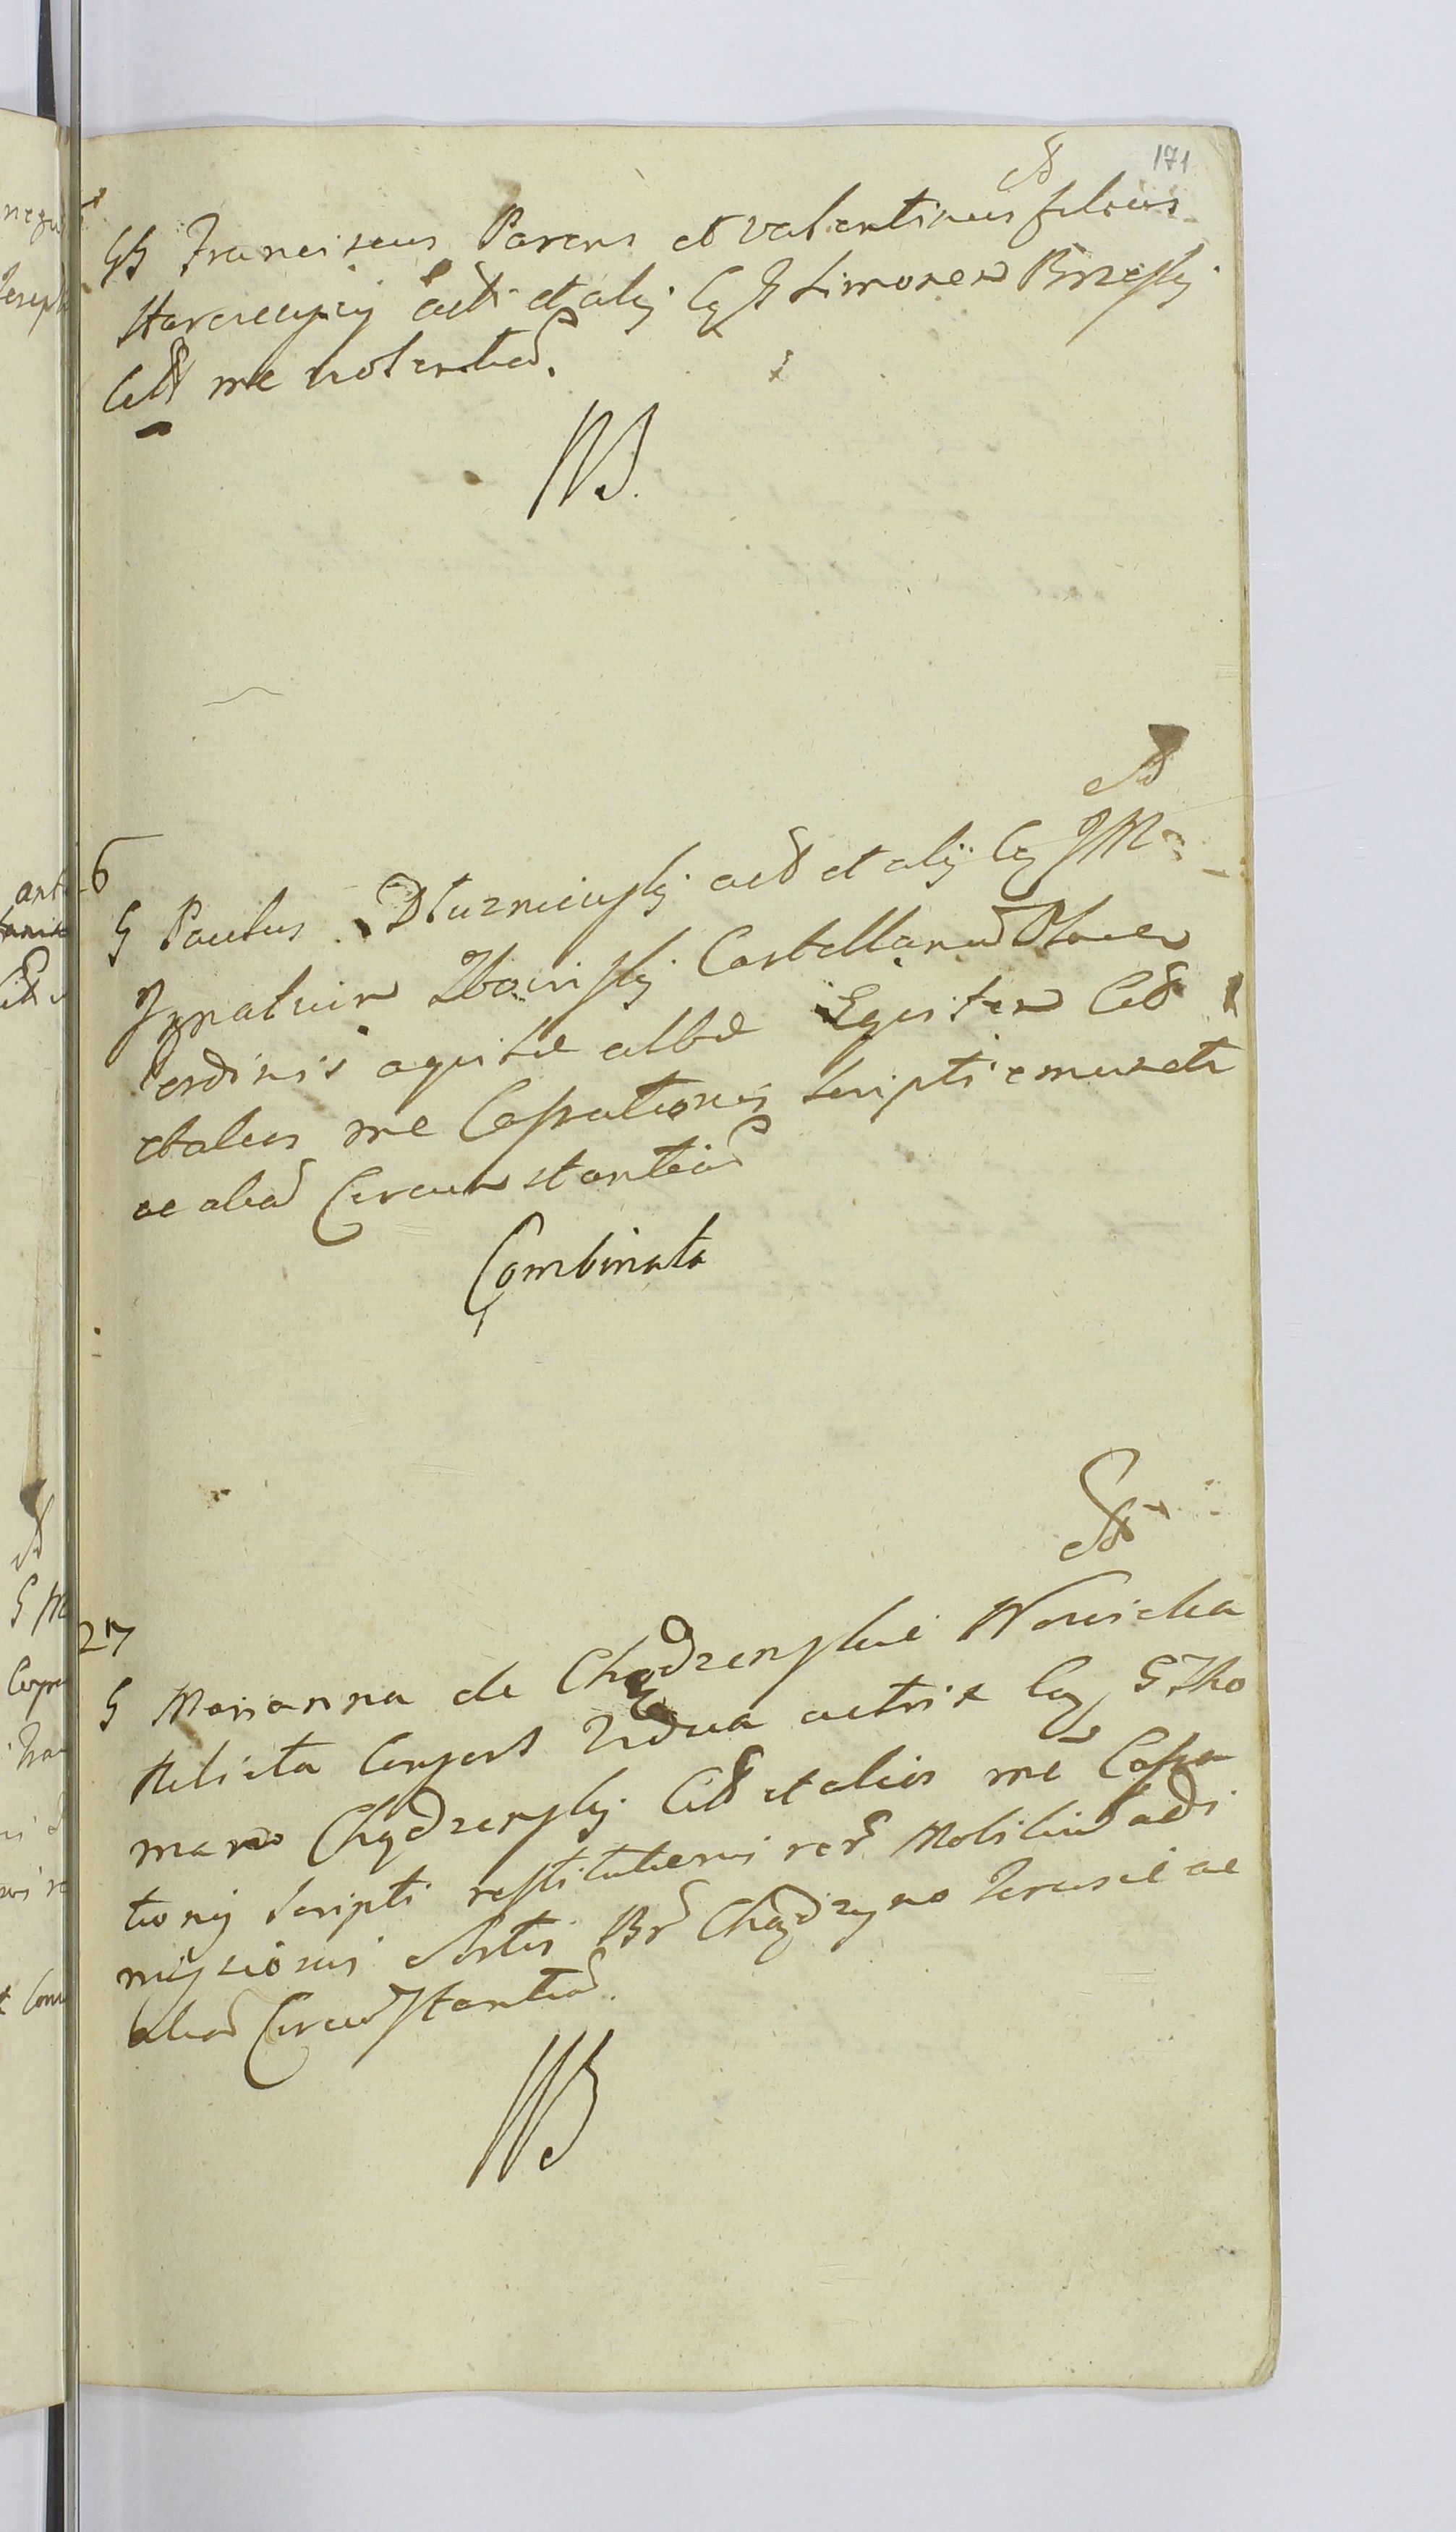 171
GG Franciscus Parens et Valentinus filius
act et alij Cq G Simonem Brzeski
Citt me violentiar.
NB.
6
G Paulus Dłuzniewski act et alij Cq JM
Ignatium Zboinski Castellanum Plocen
Ordinis aquilæ albæ Equitem Citt
et alios me Cassationis scripti emunctti
ac aliar Circumstantiar
Combinata
27
G Marianna de Chądzynskie Nowicka
Relicta Consors Vidua actrix Cq G Tho
mam Chądzenski Citt et alios me Cassa
tionis scripti restitutionis rer Mobilium adi
missionis Sortis Br Chądzyno Jerusie ac
aliar Circumstantiar.
NB